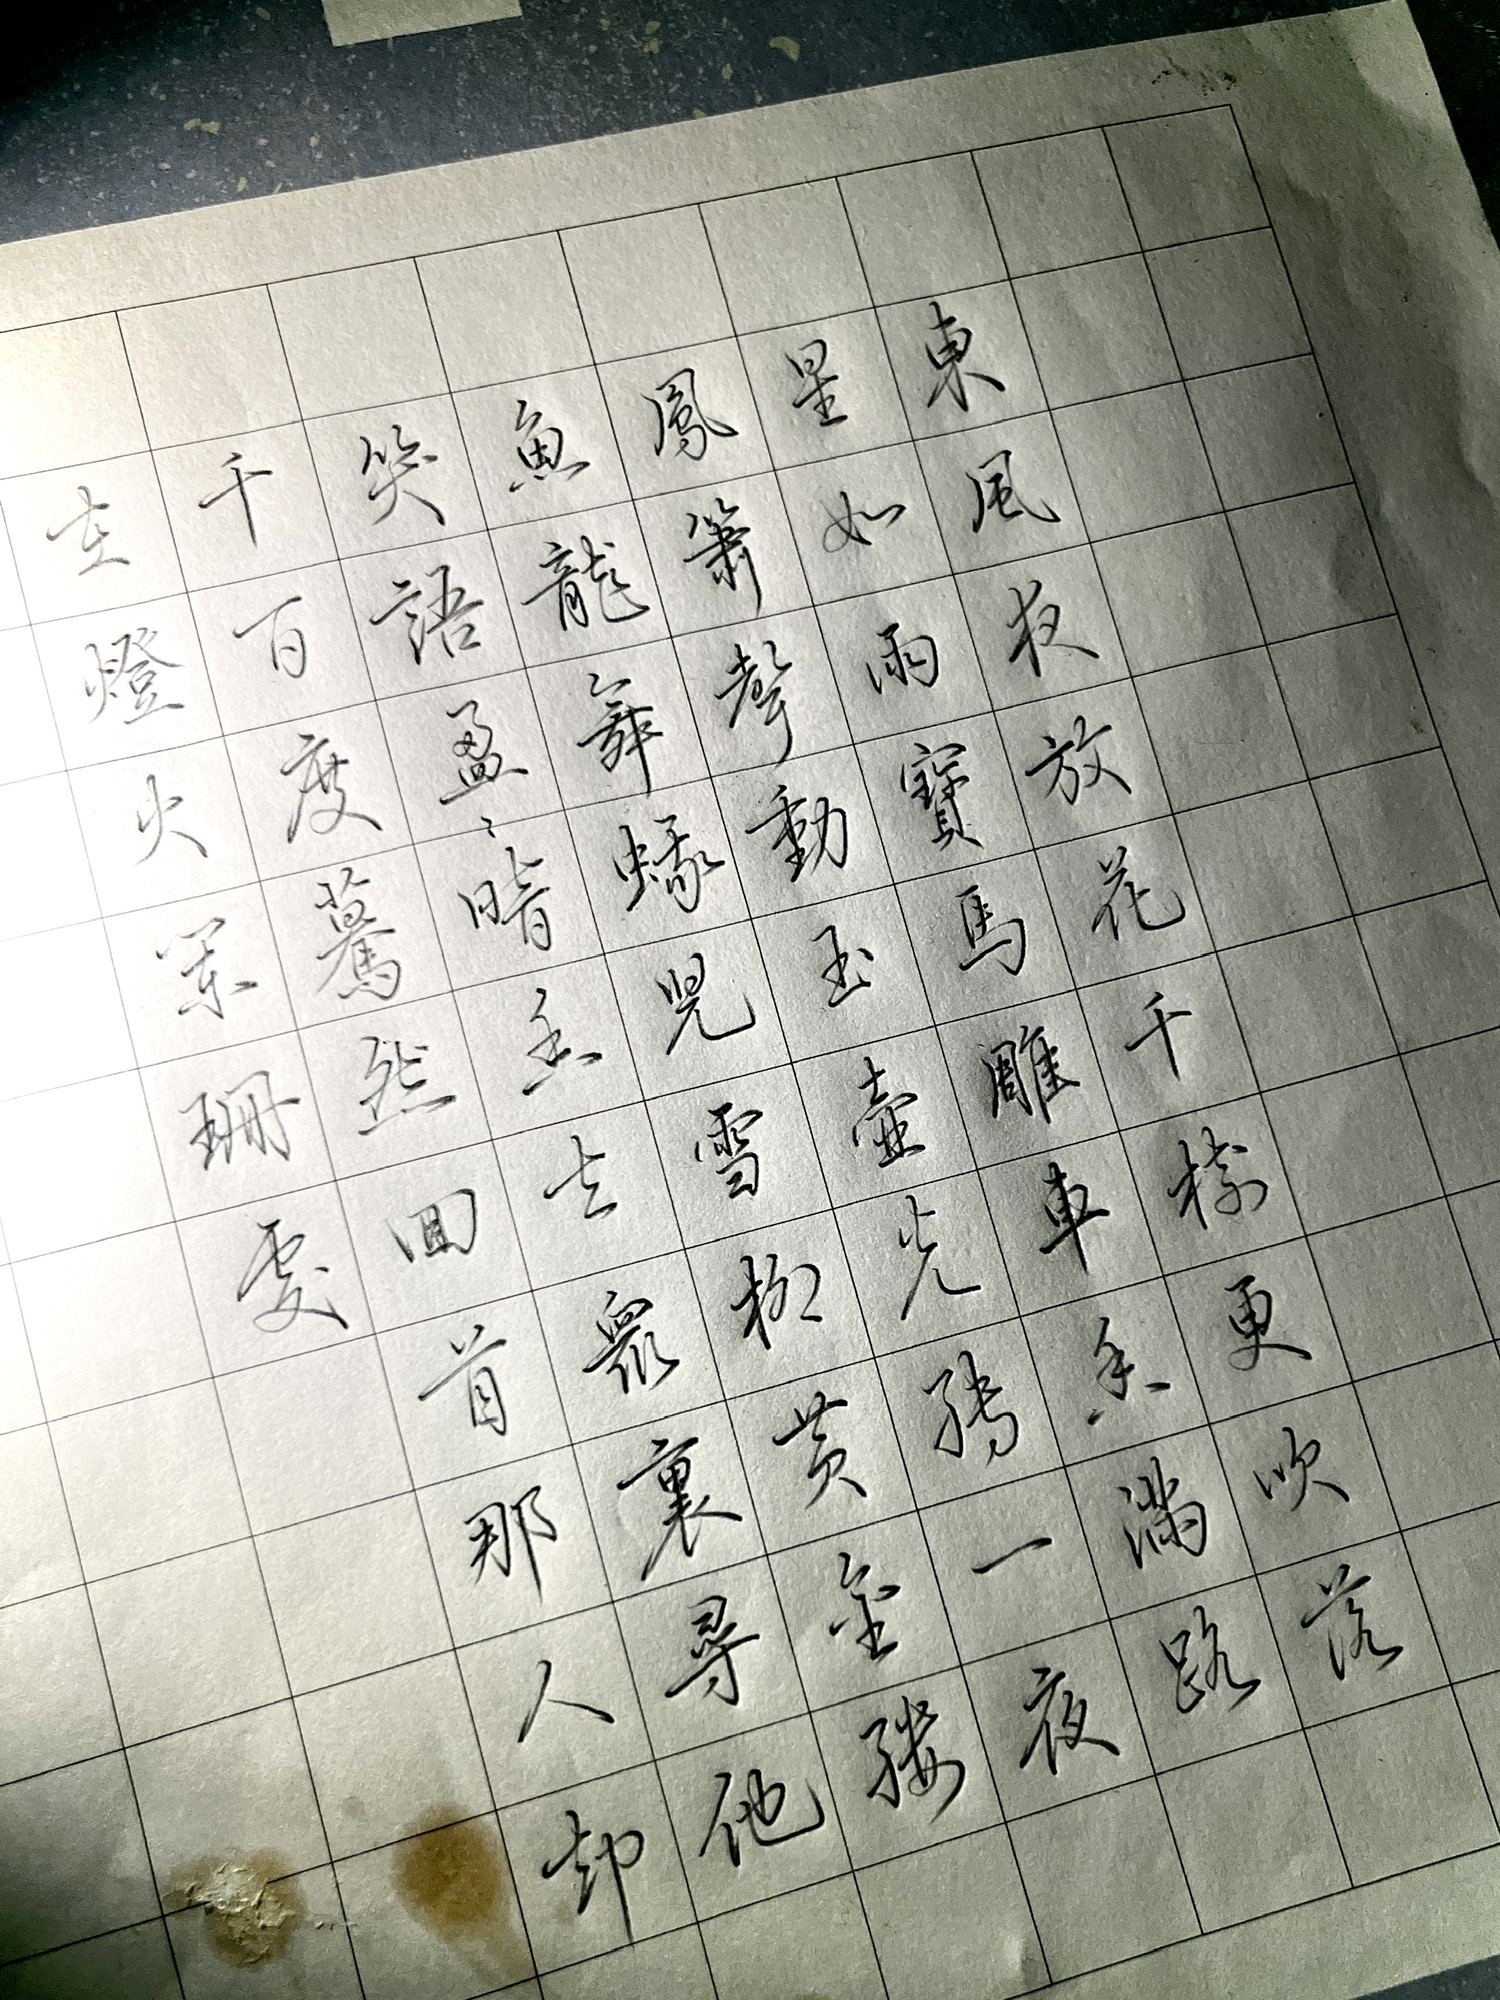 東風夜放花千樹更吹落
星如雨寶馬雕車香滿路
鳳簫聲動玉壺光轉一夜
魚龍舞蛾兒雪柳黃金縷
笑語盈〻暗香去眾裏尋他
千百度驀然回首那人却
在燈火闌珊處